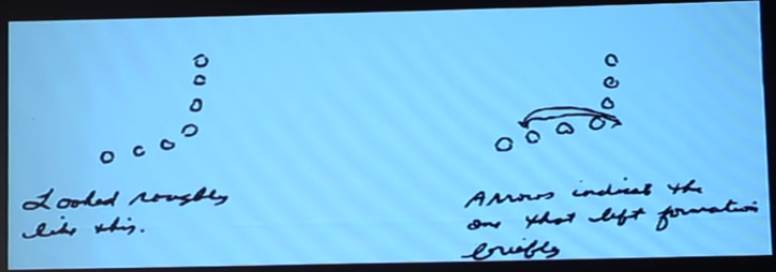 Looked roughly
like this.
Arrows indicat the
one that left formation
briefly